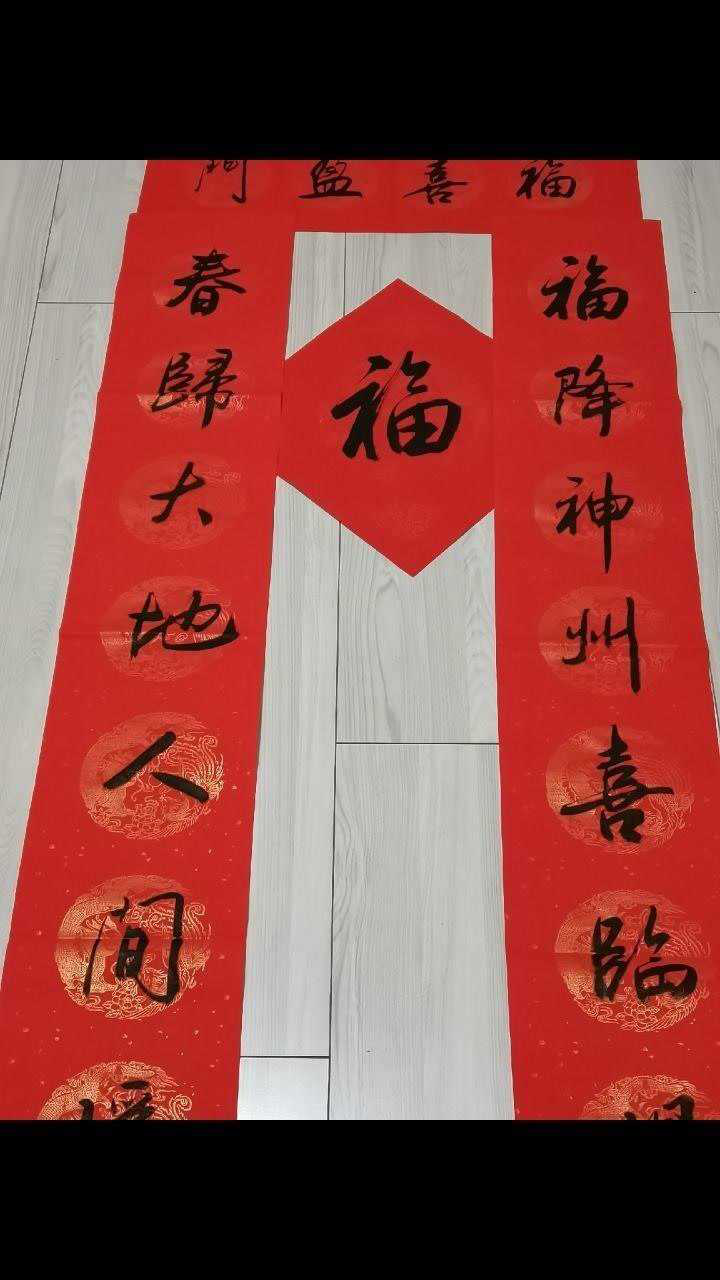 福喜盈門
福降神州喜臨
福
春歸大地人間